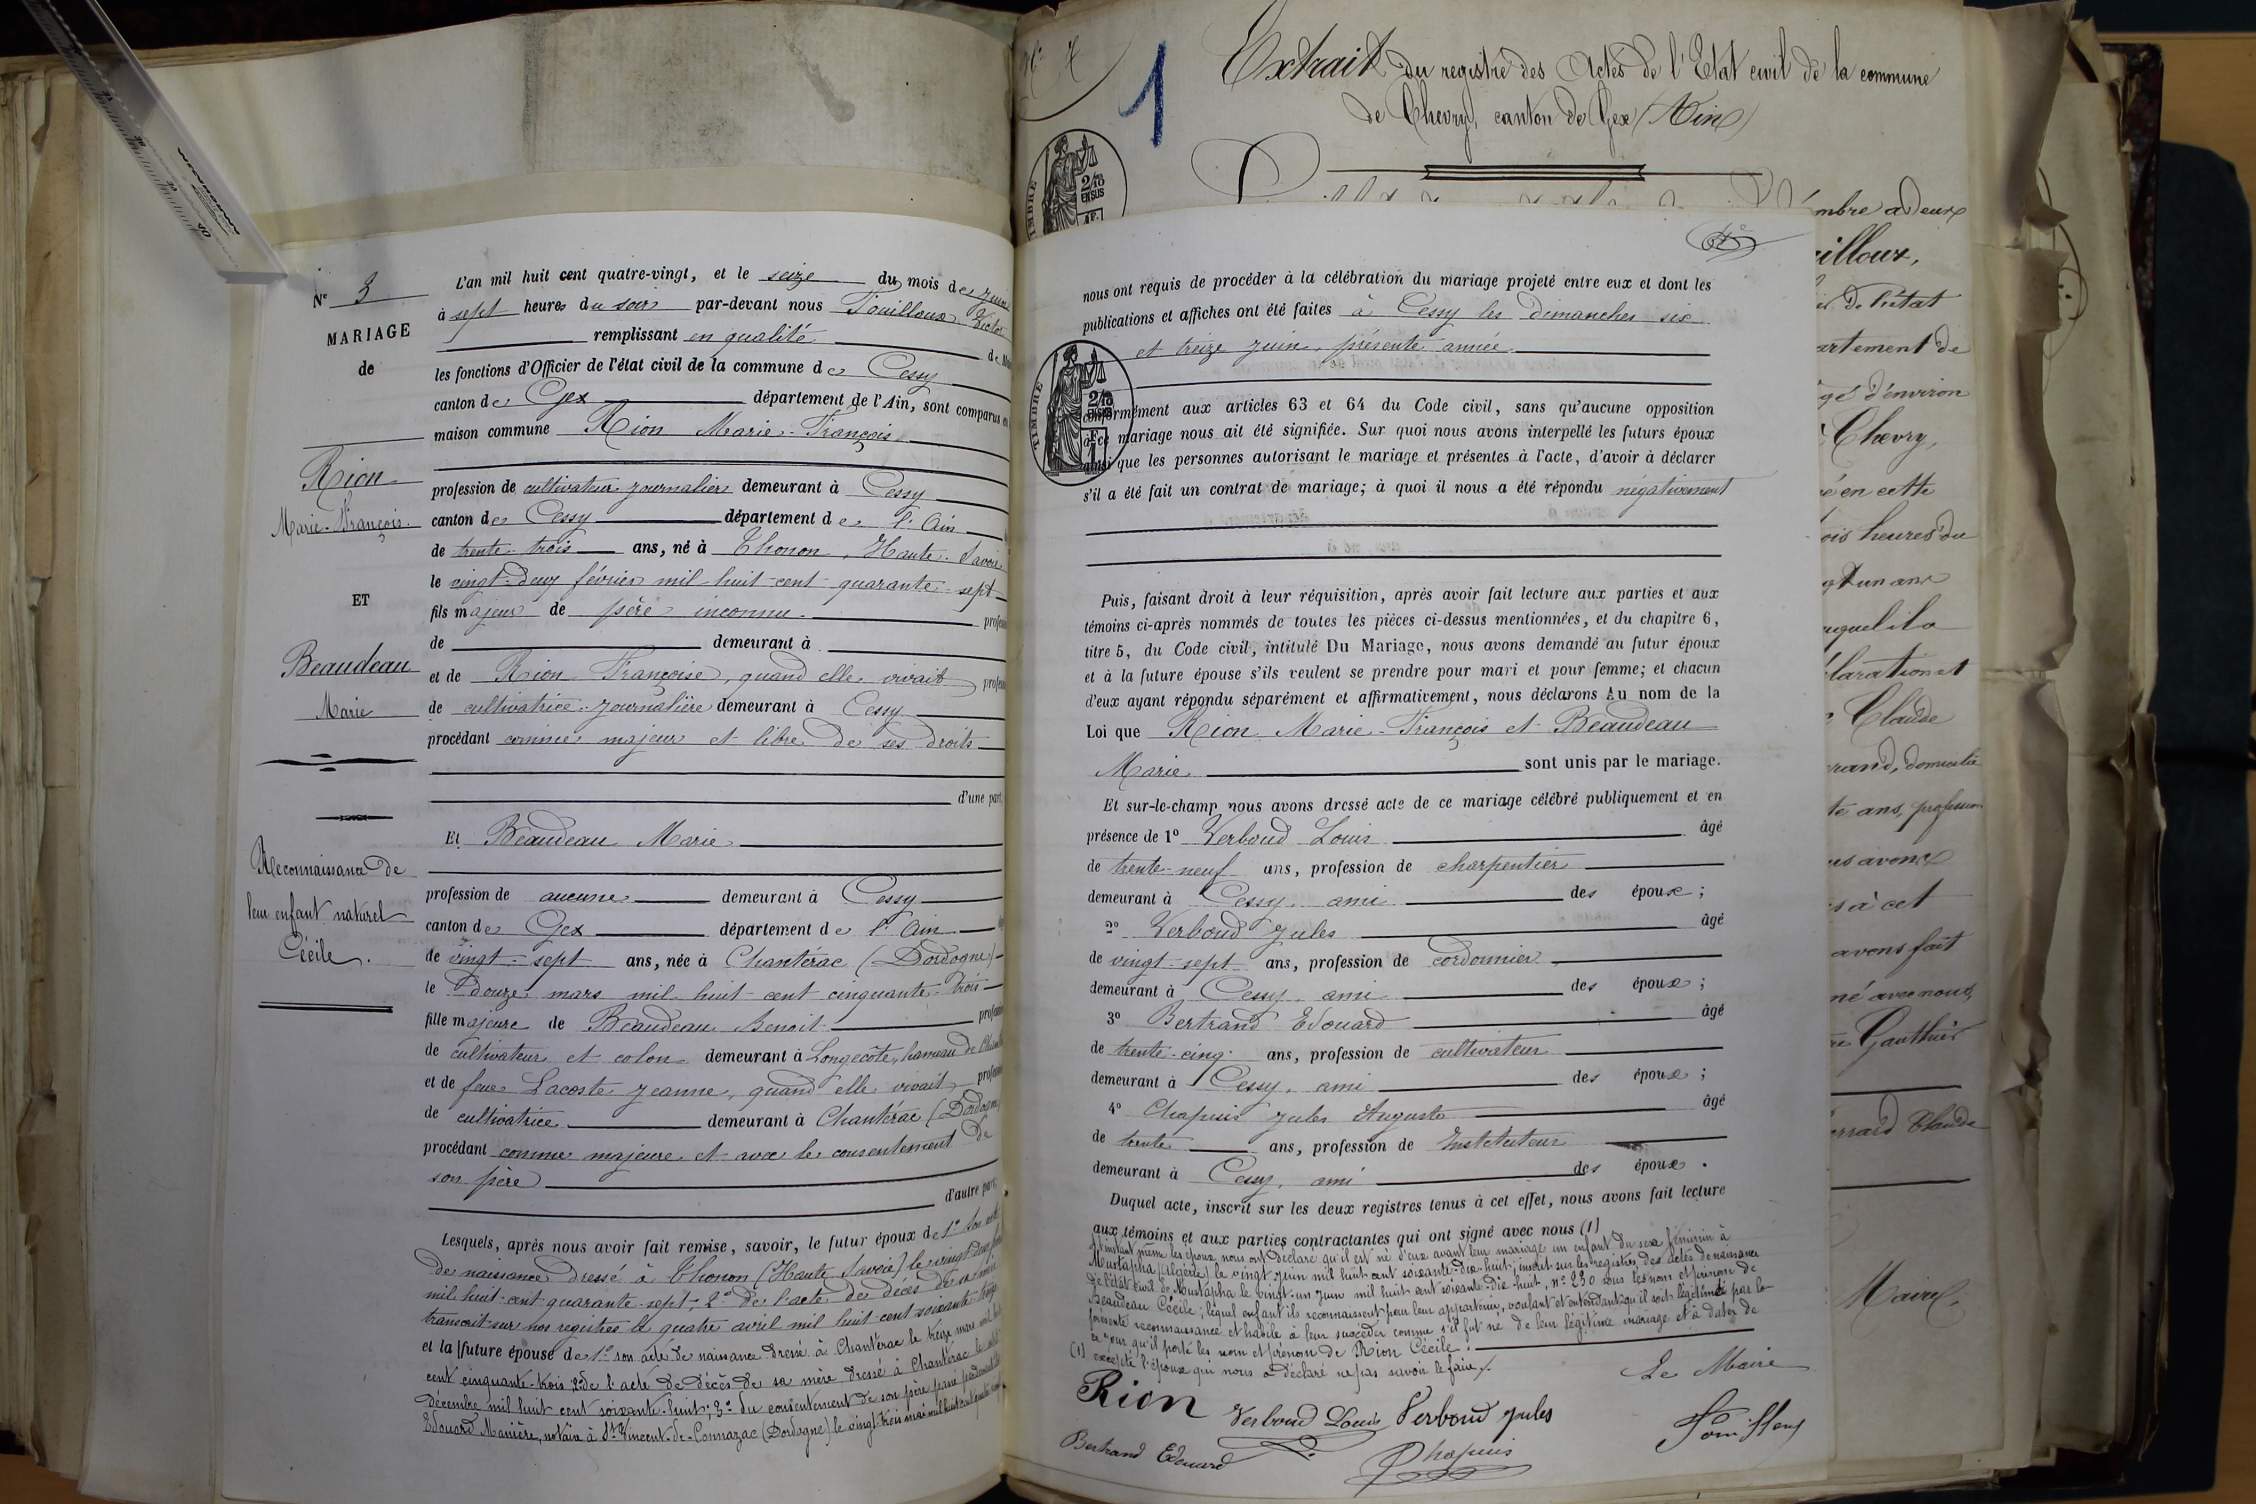 Nº 3
MARIAGE
de
Rion
Marie-François
ET
Beaudeau
Marie
Reconnaissance de
leur enfant naturel
Cécile.
L'an mil huit cent quatre-vingt, et le seize du mois de juin
à sept heures du soir par-devant nous Fouilloux Victor
remplissant en qualité de
les fonctions d'Officier de l'état civil de la commune de Cessy
canton de Gex département de l'Ain, sont comparus en
maison commune Rion Marie-François
profession de cultivateur journalier demeurant à Cessy
canton de Cessy département de l'Ain
de trente-trois ans, né à Thonon, Haute-Savoie
le vingt-deux février mil huit-cent-quarante-sept
fils majeur de père inconnu
de demeurant à
et de Rion Françoise, quand elle vivait
de cultivatrice-journalière demeurant à Cessy
procédant comme majeur et libre de ses droits
d'une part,
Et Beaudeau Marie
profession de aucune demeurant à Cessy
canton de Gex département de l'Ain
de vingt-sept ans, née à Chantérac (Dordogne)
le douze mars mil huit-cent cinquante-trois
fille majeure de Beaudeau Benoit
de cultivateur et colon demeurant à Longecôte, hameau de
et de feue Lacoste Jeanne, quand elle vivait
de cultivatrice demeurant à Chantérac (Dordogne)
procédant comme majeure et avec le consentement de
son père
d'autre part,
Lesquels, après nous avoir fait remise, savoir, le futur époux de 1º son acte
de naissance dressé à Thonon (Haute Savoie) le vingt-deux
mil huit-cent-quarante-sept; 2º de l'acte de décès de sa mère
transcrit sur nos registres le quatre avril mil huit cent soixante
et la future épouse de 1º son acte de naissance dressé à Chantérac le treize mars mil huit
cent cinquante-trois 2º de l'acte de décès de sa mère dressé à Chantérac le
décembre mil huit cent soixante-huit; 3º du consentement de son père passé
Edouard Manière, notaire à St Vincent-de-Connazac (Dordogne) le vingt-trois mai mil huit cent
Extrait du registre des Actes de l'Etat civil de la commune
de Chevry, canton de Gex (Ain)
1
TIMBRE
2/10
EN SUS
nous ont requis de procéder à la célébration du mariage projeté entre eux et dont les
publications et affiches ont été faites à Cessy les dimanches six
et treize juin, présente année
TIMBRE
2/10
EN SUS
conformément aux articles 63 et 64 du Code civil, sans qu'aucune opposition
à ce mariage nous ait été signifiée. Sur quoi nous avons interpellé les futurs époux
ainsi que les personnes autorisant le mariage et présentes à l'acte, d'avoir à déclarer
s'il a été fait un contrat de mariage; à quoi il nous a été répondu négativement
Puis, faisant droit à leur réquisition, après avoir fait lecture aux parties et aux
témoins ci-après nommés de toutes les pièces ci-dessus mentionnées, et du chapitre 6,
titre 5, du Code civil, intitulé Du Mariage, nous avons demandé au futur époux
et à la future épouse s'ils veulent se prendre pour mari et pour femme; et chacun
d'eux ayant répondu séparément et affirmativement, nous déclarons Au nom de la
Loi que Rion Marie-François et Beaudeau
Marie sont unis par le mariage.
Et sur-le-champ nous avons dressé acte de ce mariage célébré publiquement et en
présence de 1º Verboud Louis âgé
de trente-neuf ans, profession de charpentier
demeurant à Cessy, ami des époux;
2º Verboud Jules âgé
de vingt-sept ans, profession de cordonnier
demeurant à Cessy, ami des époux;
3º Bertrand Edouard âgé
de trente-cinq ans, profession de cultivateur
demeurant à Cessy, ami des époux;
4º Chapuis Jules Auguste âgé
de trente ans, profession de Instituteur
demeurant à Cessy, ami des époux.
Duquel acte, inscrit sur les deux registres tenus à cet effet, nous avons fait lecture
aux témoins et aux parties contractantes qui ont signé avec nous (1)
A l'instant même les époux nous ont déclaré qu'il est né d'eux avant leur mariage un enfant du sexe féminin à
Mustapha (Algérie) le vingt juin mil huit cent soixante-dix-huit, inscrit sur les registres des actes de naissance
de l'état civil de Mustapha le vingt-un juin mil huit cent soixante-dix-huit, nº 230 sous les nom et prénom de
Beaudeau Cécile; lequel enfant ils reconnaissent pour leur appartenir, voulant et entendant qu'il soit légitimé par la
présente reconnaissance et habile à leur succéder comme s'il fut né de leur légitime mariage et à dater de
ce jour qu'il porte les nom et prénom de Rion Cécile.
(1) excepté l'épouse qui nous a déclaré ne pas savoir le faire.
Le Maire
Rion Verboud Louis Verboud Jules
Bertrand Edouard Chapuis
mbre à deux
uilloux,
de l'état
artement de
d'environ
Chevry,
en cette
ois heures du
Claude
rand, domicilié
te ans, profession
avons
à cet
avons fait
né avec nous,
Gauthier
Claude
Maire.